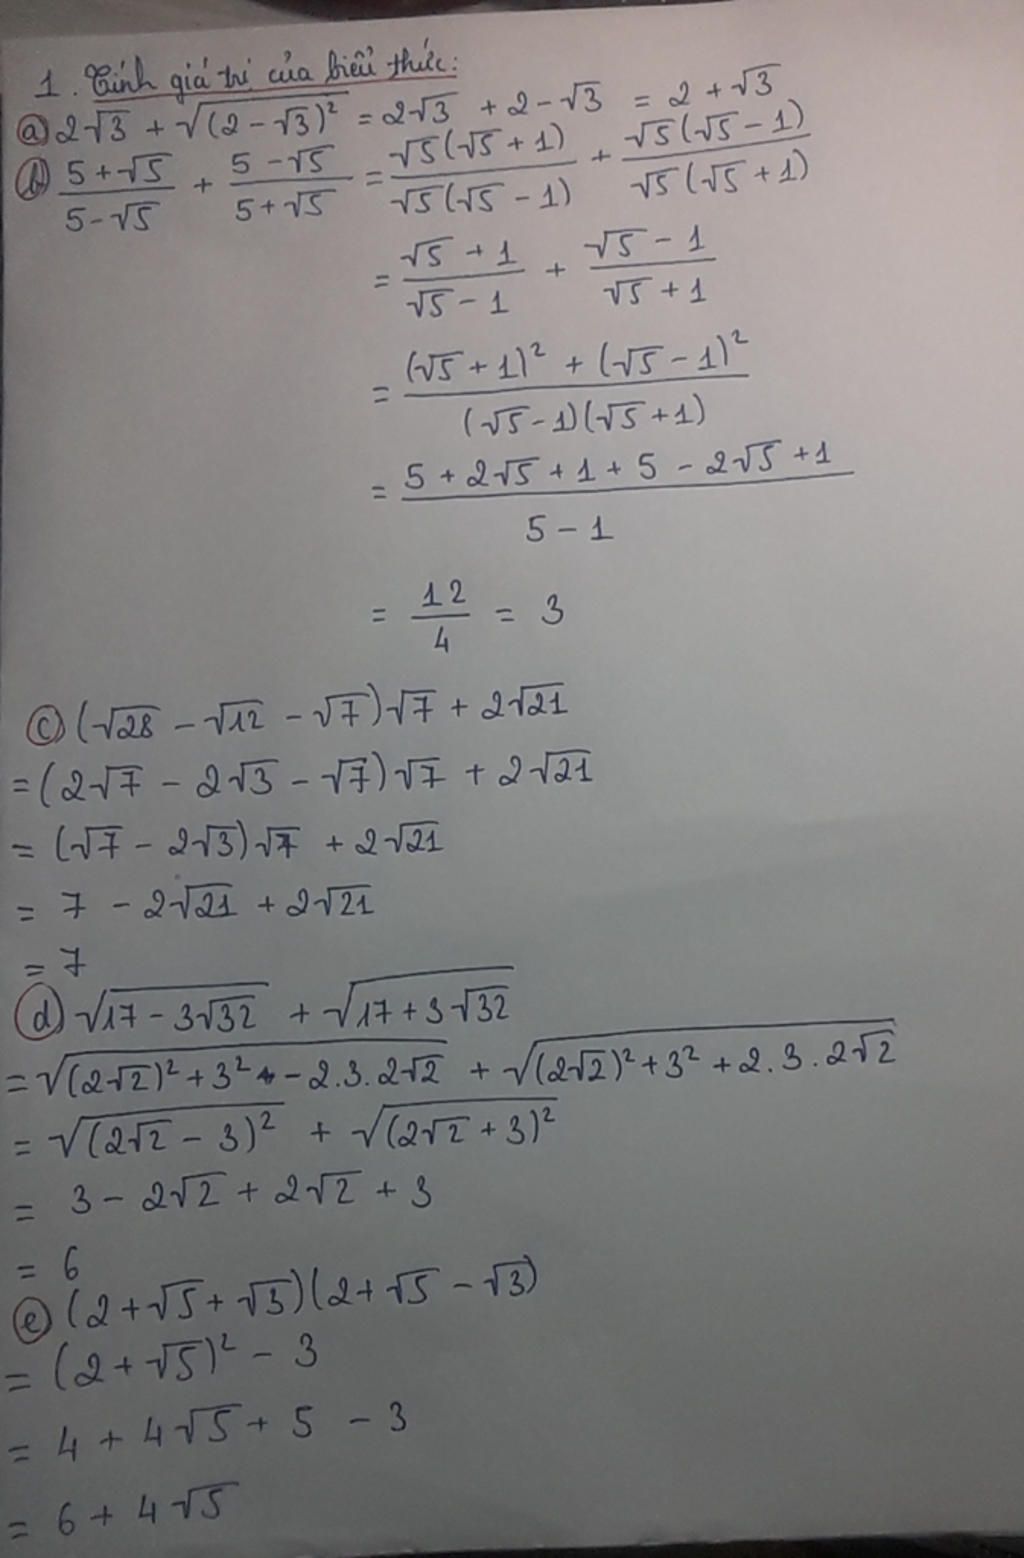 1. Tính giá trị của biểu thức:
a) 2√3 + √((2 - √3)²) = 2√3 + 2 - √3 = 2 + √3
b) (5 + √5)/(5 - √5) + (5 - √5)/(5 + √5) = √5(√5 + 1)/√5(√5 - 1) + √5(√5 - 1)/√5(√5 + 1)
= (√5 + 1)/(√5 - 1) + (√5 - 1)/(√5 + 1)
= ((√5 + 1)² + (√5 - 1)²)/((√5 - 1)(√5 + 1))
= (5 + 2√5 + 1 + 5 - 2√5 + 1)/(5 - 1)
= 12/4 = 3
c) (√28 - √12 - √7)√7 + 2√21
= (2√7 - 2√3 - √7)√7 + 2√21
= (√7 - 2√3)√7 + 2√21
= 7 - 2√21 + 2√21
= 7
d) √(17 - 3√32) + √(17 + 3√32)
= √((2√2)² + 3² - 2.3.2√2) + √((2√2)² + 3² + 2.3.2√2)
= √((2√2 - 3)²) + √((2√2 + 3)²)
= 3 - 2√2 + 2√2 + 3
= 6
e) (2 + √5 + √3)(2 + √5 - √3)
= (2 + √5)² - 3
= 4 + 4√5 + 5 - 3
= 6 + 4√5